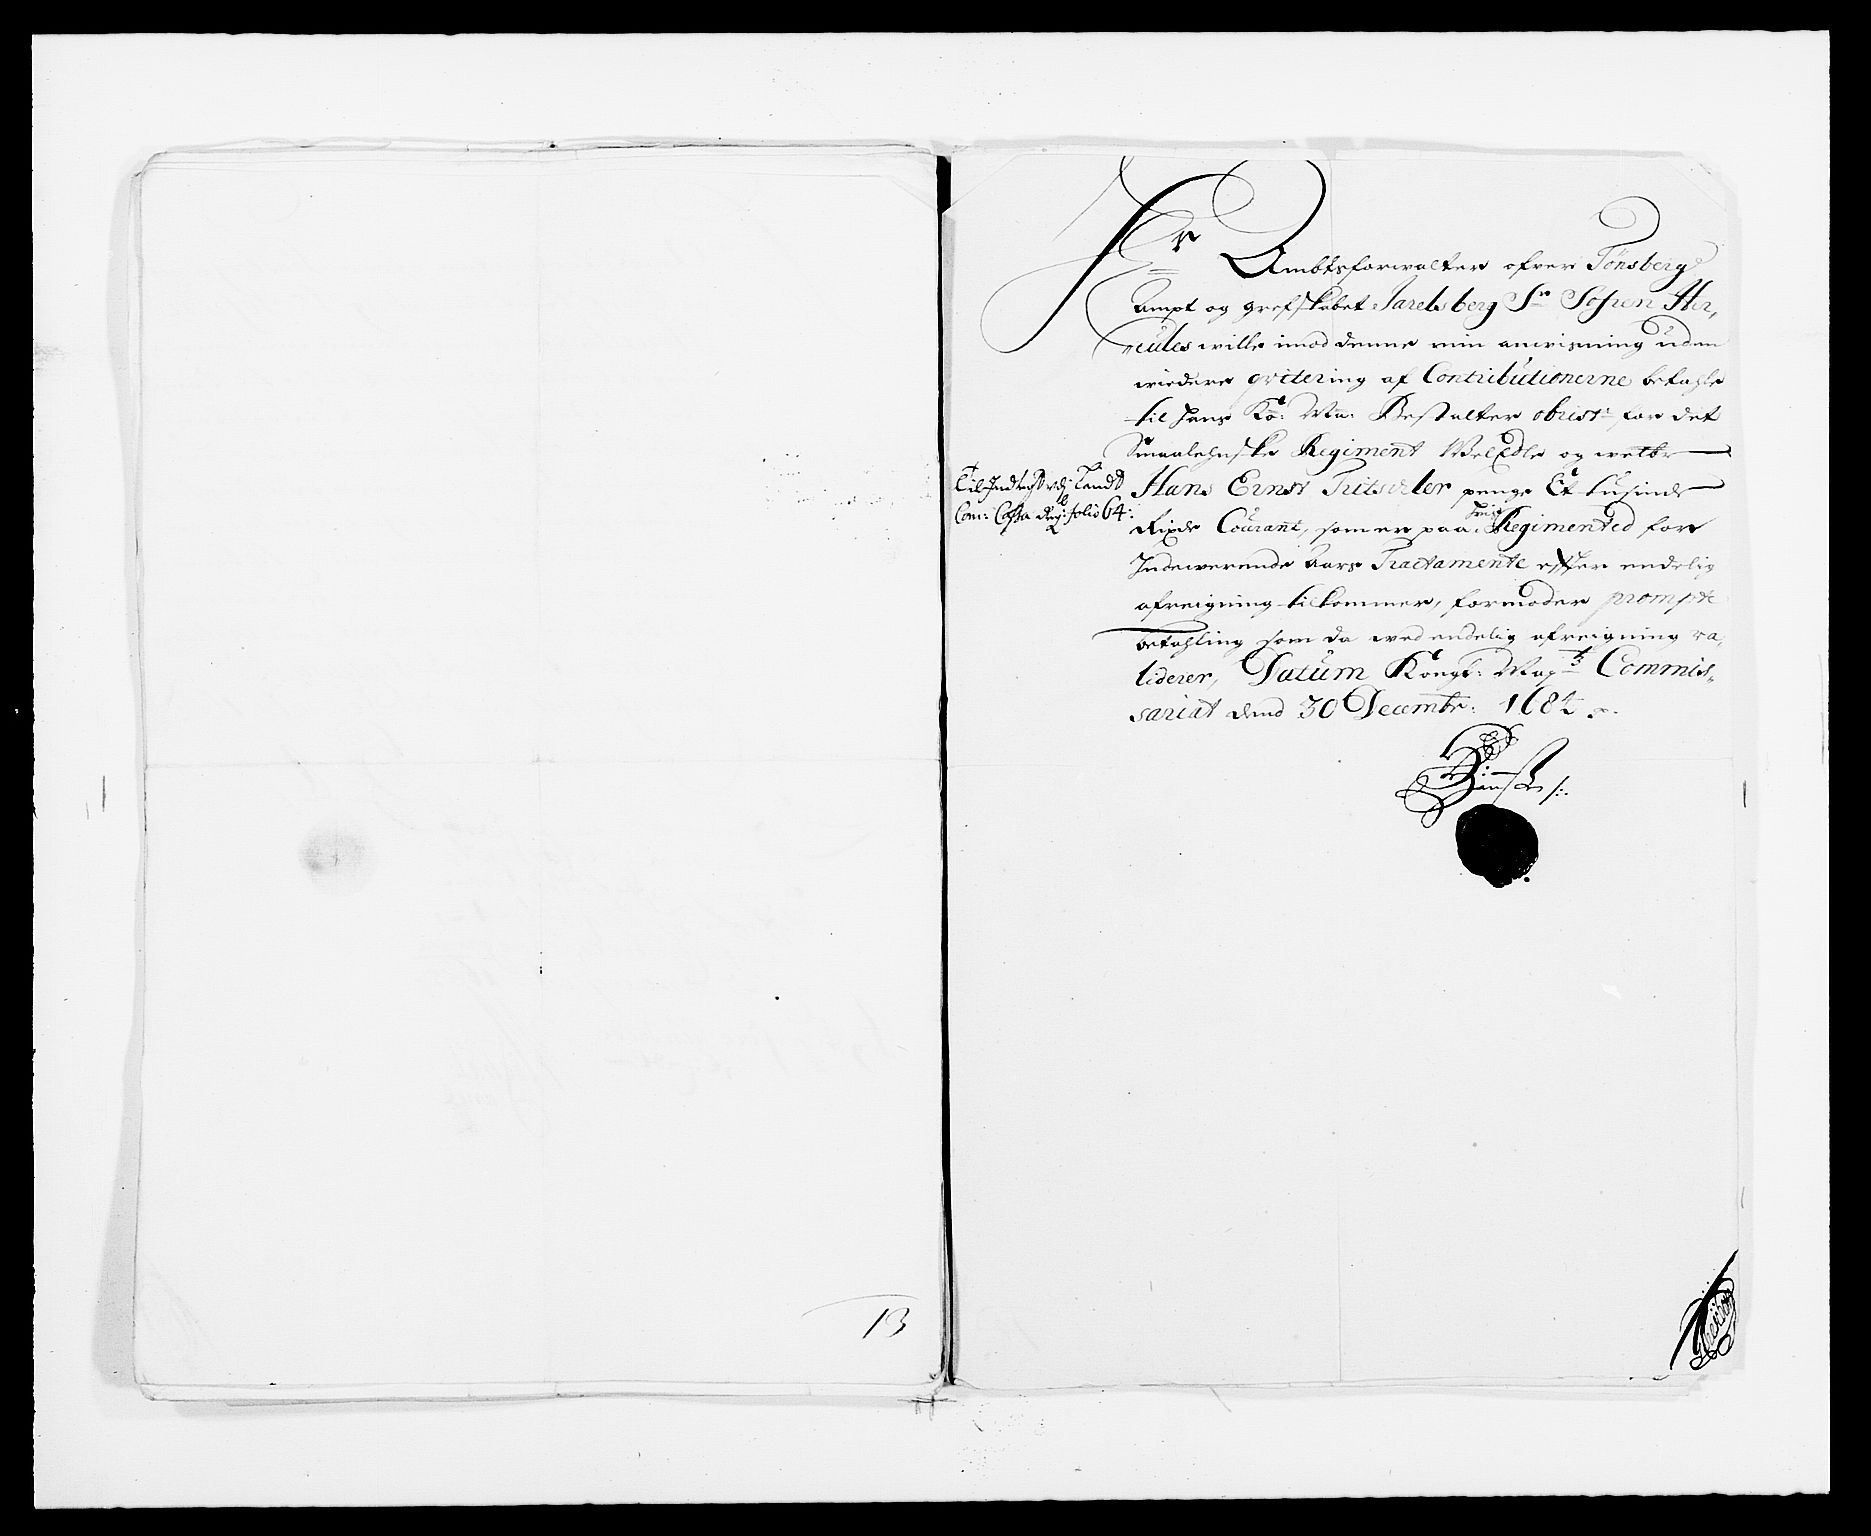 Hr Ambtsforwalter ofver Tönsberg
Ampt og grefskabet Jarelsberg Sr Sofren Her,
cules wille imod denne min anvisning uden
widere qvitering af Contributionerne betahle
til hans Kò: Ma: Bestalter obrist: for det
Smaalehnske Regiment WelEdle og welbr
Hans Ernst Tritscler penge Et tusinde
Rixdr Courant, som er paa Regimented for
Indewerende aars Tractamente efter endelig
afreigning tilkommer, formoder prompte
betahling som da wed endelig afreigning va,
liderer, Datum Kongl: Mayts Commis,,
sariat dend 30 Decembr: 1684
Til Indtegt udj Landt
Com: Cassa Reg: folio 64:
13